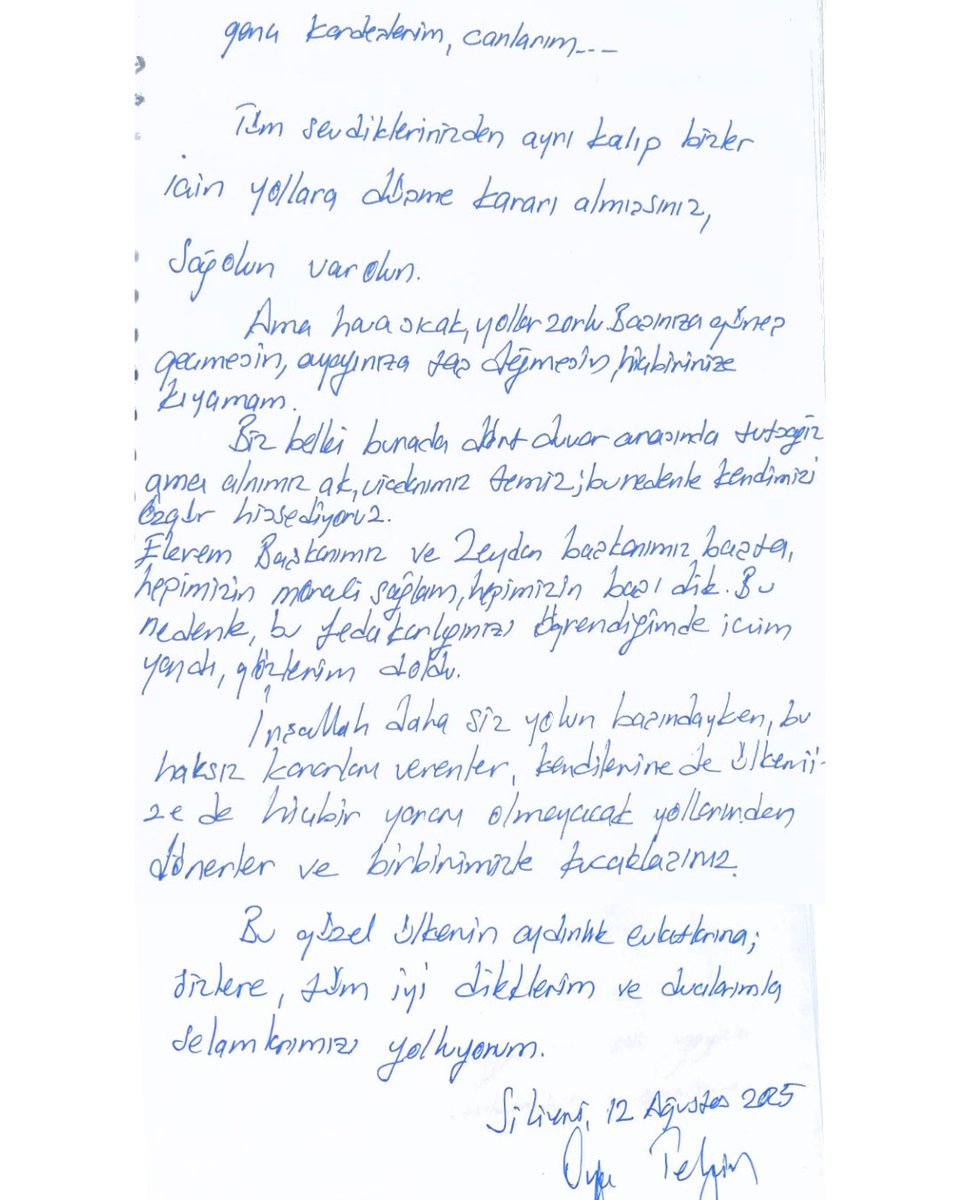 genç kardeşlerim, canlarım...
Tüm sevdiklerinizden ayrı kalıp bizler
için yollara düşme kararı almışsınız,
Sağolun varolun.
Ama hava sıcak, yollar zorlu. Başınıza güneş
geçmesin, ayağınıza taş değmesin, hiçbirinize
kıyamam.
Biz belki burada dört duvar arasında tutsağız
ama alnımız ak, vicdanımız temiz; bu nedenle kendimizi
özgür hissediyoruz.
Ekrem Başkanımız ve Zeydan başkanımız başta,
hepimizin morali sağlam, hepimizin başı dik. Bu
nedenle, bu fedakarlığınızı öğrendiğimde içim
yandı, gözlerim doldu.
İnşallah daha siz yolun başındayken, bu
haksız kararları verenler, kendilerine de ülkemi-
ze de hiçbir yararı olmayacak yollarından
dönerler ve birbirimizle kucaklaşırız.
Bu güzel ülkenin aydınlık evlatlarına;
sizlere, tüm iyi dileklerim ve dualarımla
selamlarımızı yolluyorum.
Silivri, 12 Ağustos 2025